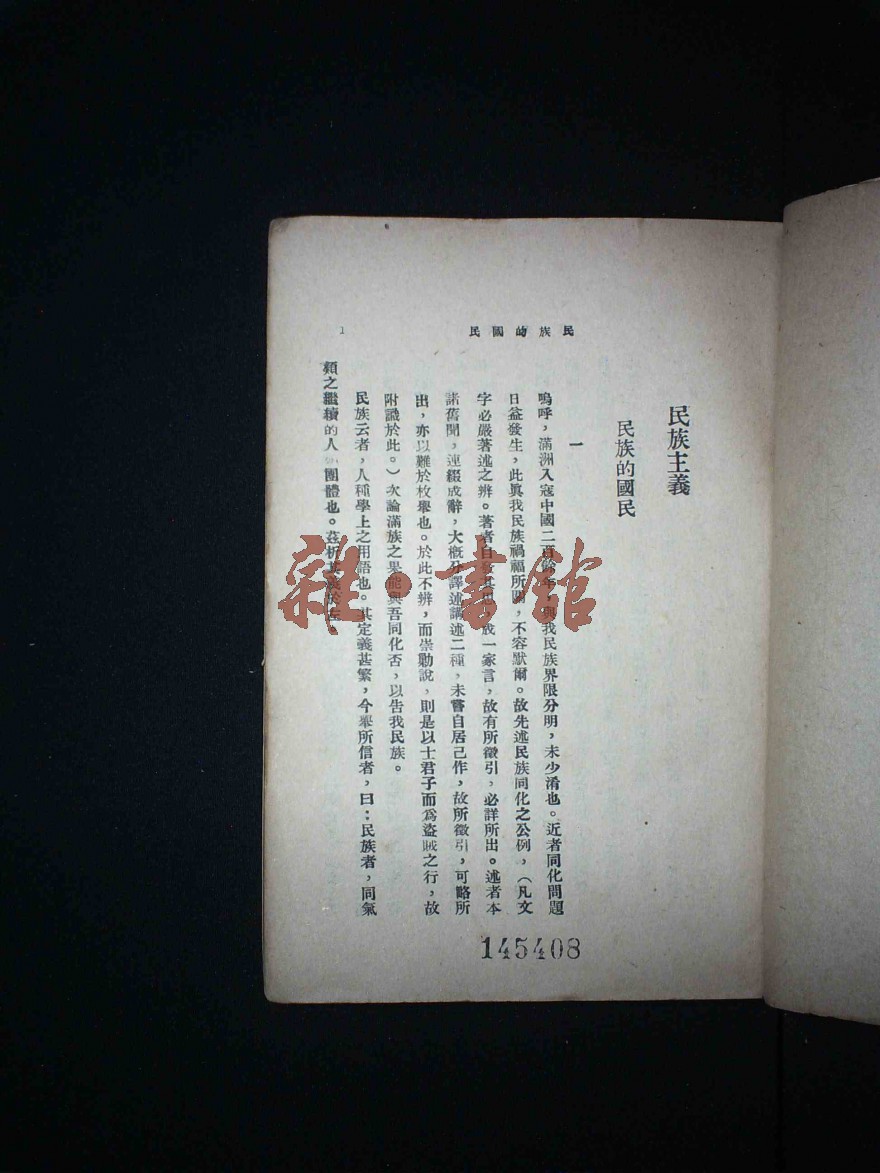 民族的國民
1
民族主義
民族的國民
一
嗚呼，滿洲入寇中國二百餘年，與我民族界限分明，未少淆也。近者同化問題
日益發生，此眞我民族禍福所關，不容默爾。故先述民族同化之公例，（凡文
字必嚴著述之辨。著者自發其思，成一家言，故有所徵引，必詳所出。述者本
諸舊聞，連綴成辭，大槪分譯述講述二種，未嘗自居己作，故所徵引，可略所
出，亦以難於枚舉也。於此不辨，而崇勦說，則是以士君子而爲盜賊之行，故
附識於此。）次論滿族之果能與吾同化否，以告我民族。
民族云者，人種學上之用語也。其定義甚繁，今舉所信者，曰：民族者，同氣
類之繼續的人團體也。茲析其義於左。
145408
雜·書館